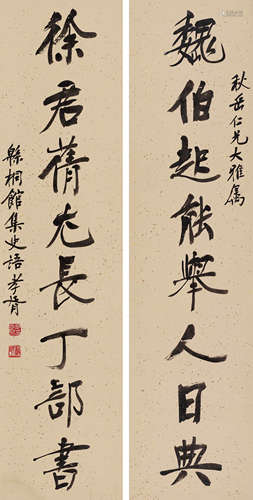 秋岳仁兄大雅属
魏伯起能舉人日典
徐君蒨尤長丁部書
桐館集史語孝胥